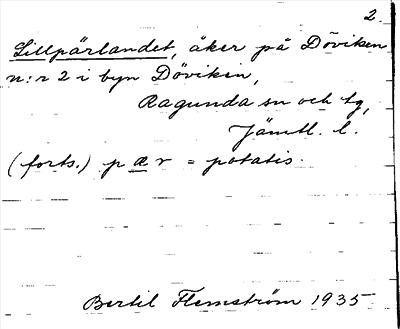 2.
Lillpärlandet, åker på Döviken
n:r 2 i byn Döviken,
Ragunda sn och tg,
Jämtl. l.
(forts.) p æ r = potatis.
Bertil Flemström 1935